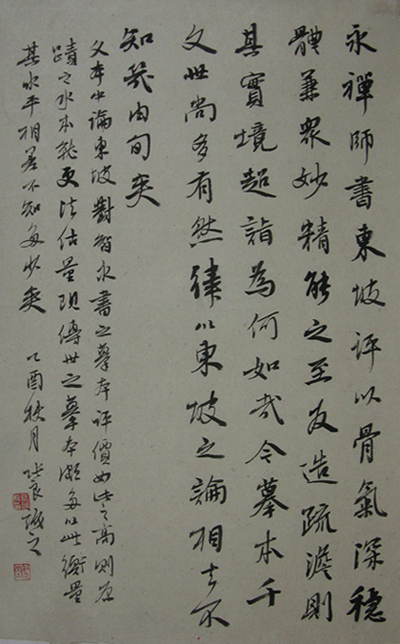 永禪師書東坡評以骨氣深穩
體兼衆妙精能之至反造疏澹則
其實境超詣為何如哉今摹本千
文世尚多有然律以東坡之論相去不
知幾由旬矣
文本中論東坡對智永書之摹本評價如此之高則原
蹟之水本就更法估量現傳世之摹本頗多以此衡量
其水平相差不知多少矣
乙酉秋月 誠之